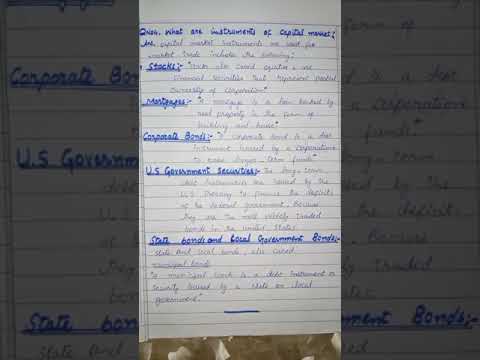 Q. No4. What are instruments of Capital market;
Ans. capital market instruments are used for
market trade includes the following;
• Stocks:- "Stocks also called equities are
financial securities that represent partial
ownership of corporation"
Mortgages:- "A mortgage is a loan backed by
real property in the form of
building and house"
Corporate Bonds:- "A corporate bond is a debt
instrument issued by a corporations
to raise longer-term funds"
U.S Government Securities:- The long-term
debt instruments are issued by the
U.S Treasury to finance the deficits
of the federal government. Because
they are the most widely traded
bonds in the united States.
State bonds and Local Government Bonds:-
State and local bonds, also called
municipal bonds
"A municipal bonds is a debt instrument or
security issued by a state or local
government"